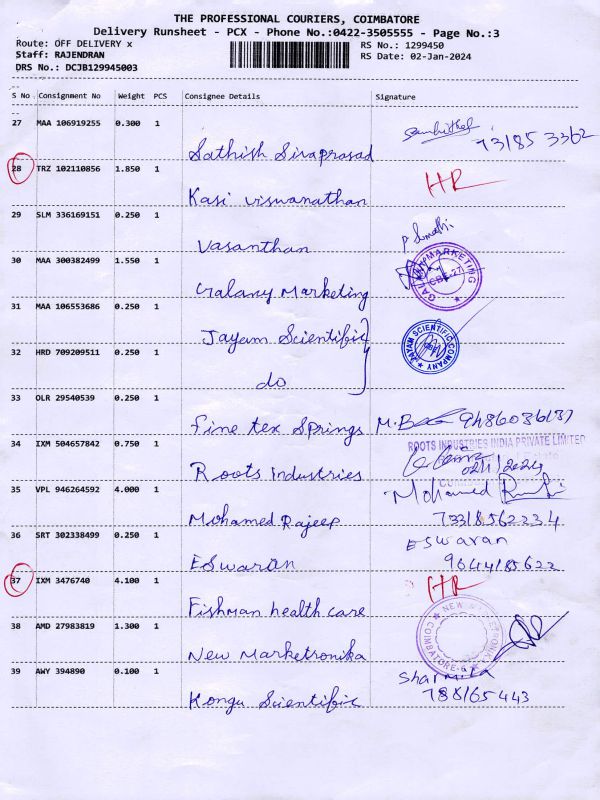 THE PROFESSIONAL COURIERS, COIMBATORE
Delivery Runsheet - PCX - Phone No.:0422-3505555 - Page No.:3
Route: OFF DELIVERY x
RS No.: 1299450
Staff: RAJENDRAN
RS Date: 02-Jan-2024
DRS No.: DCJB129945003
S No Consignment No Weight PCS Consignee Details Signature
27 MAA 106919255 0.300 1
Sathish Sivaprasad 73185 3362
28 TRZ 102110856 1.850 1
Kasi viswanathan HR
29 SLM 336169151 0.250 1
Vasanthan
30 MAA 300382499 1.550 1
Galaxy Marketing
31 MAA 106553686 0.250 1
Jayam Scientific
JAYAM SCIENTIFIC COMPANY
32 HRD 709209511 0.250 1
do
33 OLR 29540539 0.250 1
Fine tex Springs
34 IXM 504657842 0.750 1
ROOTS INDUSTRIES INDIA PRIVATE LIMITED
Roots Industries 02/1/2024
35 VPL 946264592 4.000 1
Mohamed
Mohamed Rajeep
36 SRT 302338499 0.250 1
Eswaran
Eswaran
37 IXM 3476740 4.100 1
HR
Fishman health care
38 AMD 27983819 1.300 1
COIMBATORE-6
New Marketronika
39 AWY 394890 0.100 1
Sharmila
Kongu Scientific 788165443